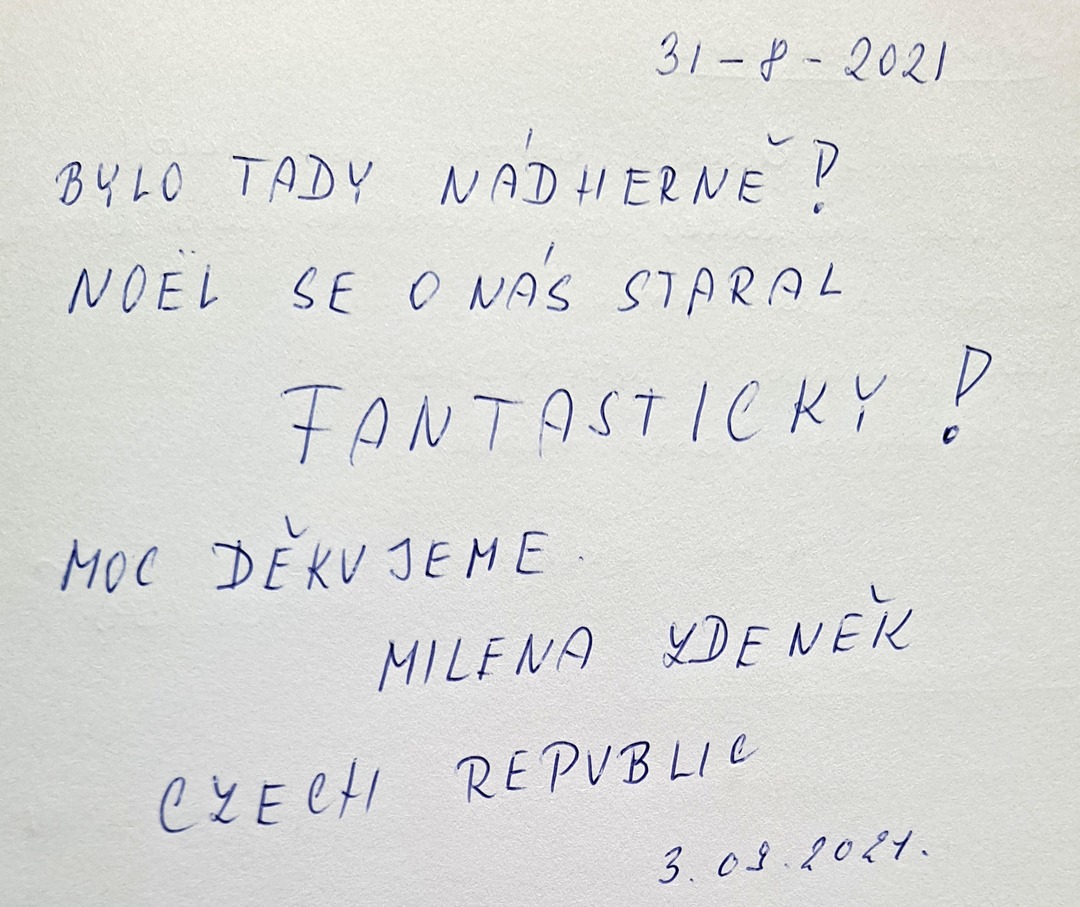 31-8-2021
BYLO TADY NÁDHERNĚ!
NOËL SE O NÁS STARAL
FANTASTICKY!
MOC DĚKUJEME.
MILENA ZDENĚK
CZECH REPUBLIC
3.09.2021.